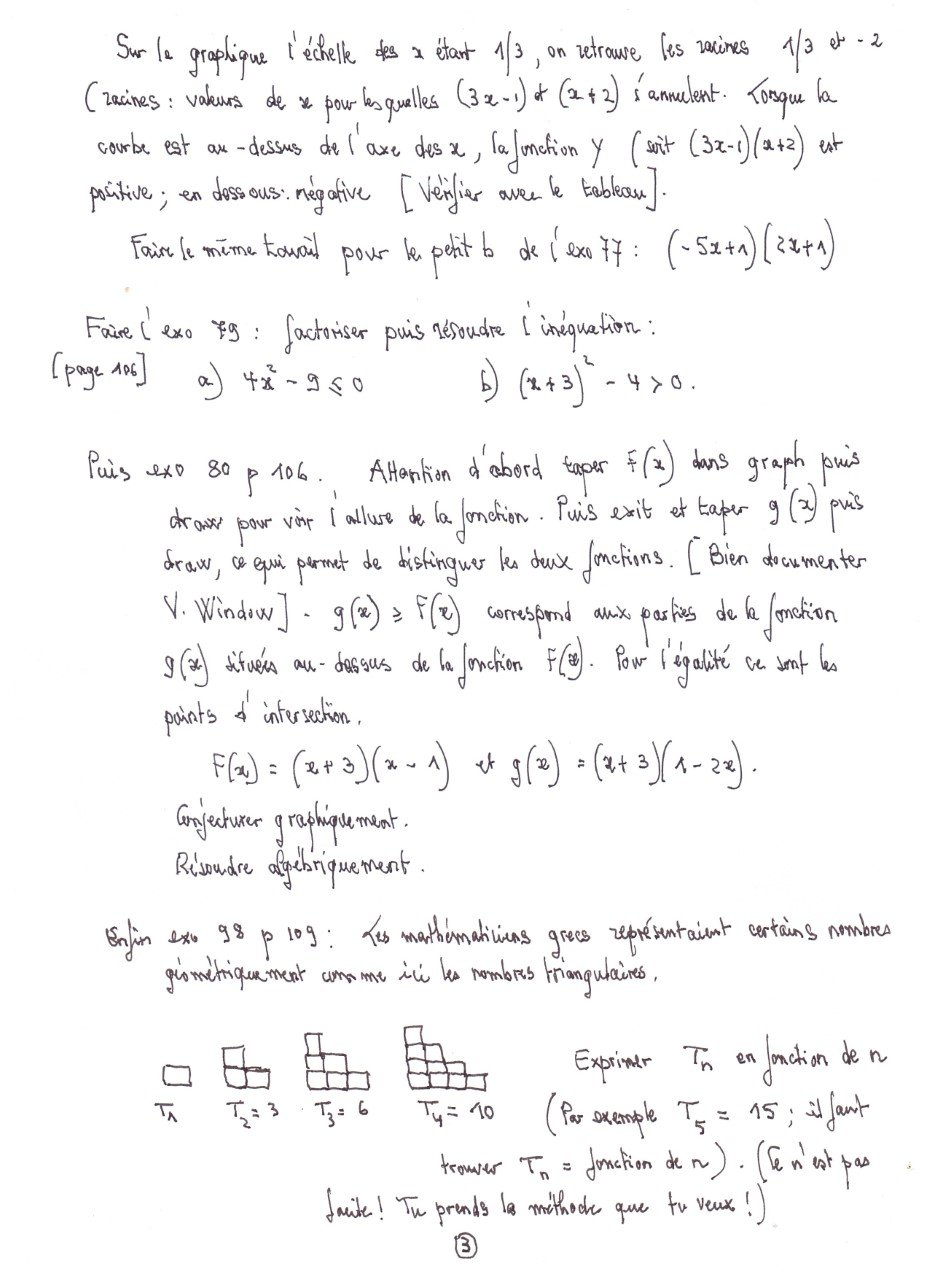 Sur le graphique l'échelle des x étant 1/3, on retrouve les racines 1/3 et -2
(racines : valeurs de x pour lesquelles (3x-1) et (x+2) s'annulent. Lorsque la
courbe est au-dessus de l'axe des x, la fonction Y (soit (3x-1)(x+2) est
positive ; en dessous : négative [Vérifier avec le tableau].
Faire le même travail pour le petit b de l'exo 77 : (-5x+1)(2x+1)
Faire l'exo 79 : factoriser puis résoudre l'inéquation :
[page 106] a) 4x² - 9 ⩽ 0 b) (x+3)² - 4 > 0.
Puis exo 80 p 106. Attention d'abord taper F(x) dans graph puis
draw pour voir l'allure de la fonction. Puis exit et taper g(x) puis
draw, ce qui permet de distinguer les deux fonctions. [Bien documenter
V. Window] - g(x) ⩾ F(x) correspond aux parties de la fonction
g(x) situées au-dessus de la fonction F(x). Pour l'égalité ce sont les
points d'intersection.
F(x) = (x+3)(x-1) et g(x) = (x+3)(1-2x).
Conjecturer graphiquement.
Résoudre algébriquement.
Enfin exo 98 p 109 : Les mathématiciens grecs représentaient certains nombres
géométriquement comme ici les nombres triangulaires.
Exprimer Tn en fonction de n
T1 T2 = 3 T3 = 6 T4 = 10 (Par exemple T5 = 15 ; il faut
trouver Tn = fonction de n). (Ce n'est pas
facile ! Tu prends la méthode que tu veux !)
3